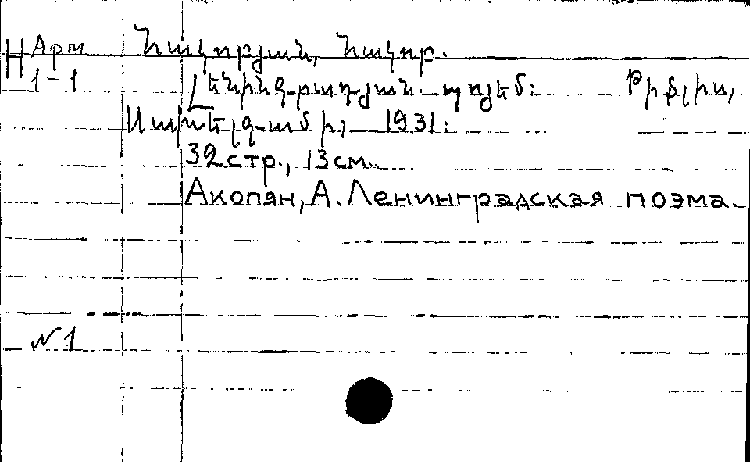 Н Арм
1-1
Հակոբյան, Հակոբ.
Լենինգրադյան պոյեմ: Թիֆլիս,
1931:
32 стр., 13 см.
Акопян, А. Ленинградская поэма.
№1